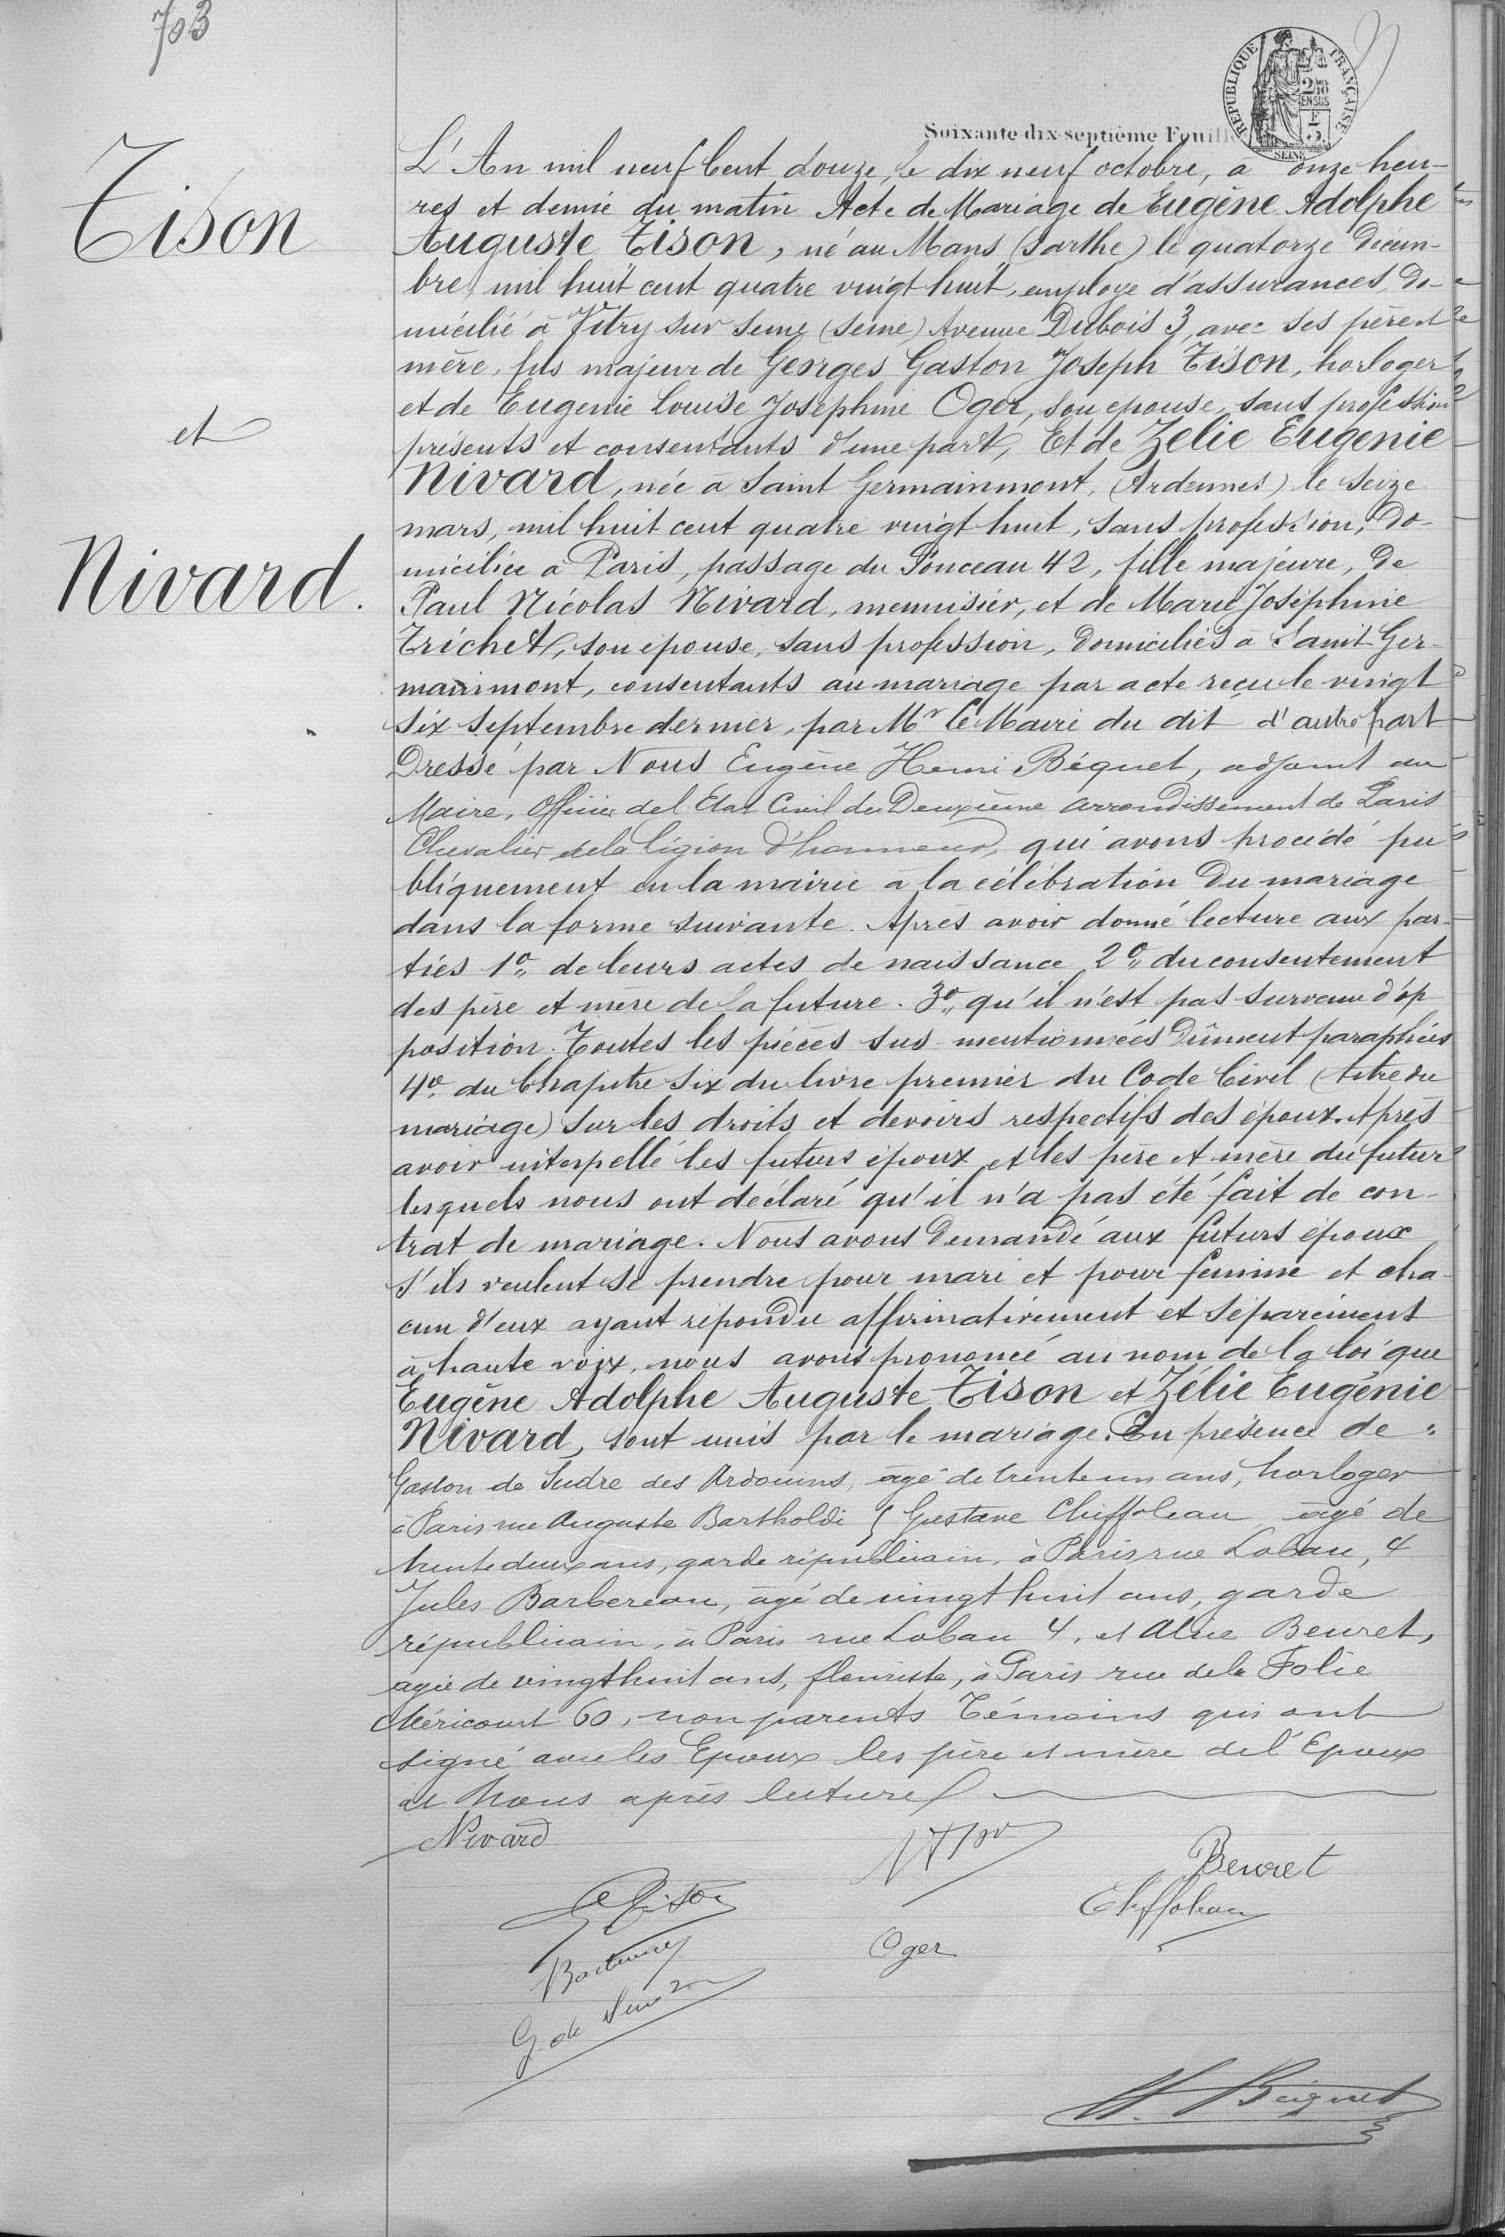 703
RÉPUBLIQUE FRANÇAISE
2/10 EN SUS
SEINE
Soixante dix-septième Feuille
Tison
et
Nivard.
L'An mil neuf Cent douze, le dix neuf octobre, à onze heu-
res et demie du matin Acte de Mariage de Eugène Adolphe
Auguste Tison, né au Mans (Sarthe) le quatorze décem-
bre, mil huit cent quatre vingt huit, employé d'assurances, do-
micilié à Vitry sur Seine (Seine) Avenue Dubois 3, avec ses père et
mère, fils majeur de Georges Gaston Joseph Tison, horloger
et de Eugenie Louise Josephine Oger, son epouse, sans profession
présents et consentants d'une part, Et de Zelie Eugenie
Nivard, née à Saint Germainmont, (Ardennes) le seize
mars, mil huit cent quatre vingt huit, sans profession, do-
miciliée à Paris, passage du Ponceau 42, fille majeure, de
Paul Nicolas Nivard, menuisier, et de Marie Joséphine
Trichet, son epouse, sans profession, domiciliés à Saint Ger-
mainmont, consentants au mariage par acte reçu le vingt
six septembre dernier, par Mr le Maire du dit d'autre part
Dressé par Nous Eugène Henri Béquet, adjoint au
Maire, Officier de l'Etat Civil du Deuxième arrondissement de Paris
Chevalier de la Légion d'honneur, qui avons procédé pu
bliquement en la mairie à la célébration du mariage
dans la forme suivante. Après avoir donné lecture aux par-
ties 1o de leurs actes de naissance 2o du consentement
des père et mère de la future. 3o qu'il n'est pas survenu d'op
position. Toutes les pièces sus-mentionnées dûment paraphées
4o du Chapitre six du livre premier du Code Civil (titre du
mariage) sur les droits et devoirs respectifs des époux. Après
avoir interpellé les futurs époux et les père et mère du futur
lesquels nous ont déclaré qu'il n'a pas été fait de con-
trat de mariage. Nous avons demandé aux futurs époux
s'ils veulent se prendre pour mari et pour femme et cha-
cun d'eux ayant répondu affirmativement et séparément
à haute voix, nous avons prononcé au nom de la loi que
Eugène Adolphe Auguste Tison et Zélie Eugénie
Nivard, sont unis par le mariage. En présence de :
Gaston de Sudre des Ardouins, âgé de trente un ans, horloger
à Paris rue Auguste Bartholdi 5 Gustave Chiffoleau âgé de
trente deux ans, garde républicain, à Paris rue Lobau, 4
Jules Barbereau, âgé de vingt huit ans, garde
républicain, à Paris rue Lobau 4, et Alice Beuret,
agée de vingt huit ans, fleuriste, à Paris rue de la Folie
Méricourt 60, non parents Témoins qui ont
signé avec les Epoux les père et mère de l'Epoux
et Nous après lecture
Nivard
Beuret
Tison
Chiffoleau
Oger
G de
H. Béquet